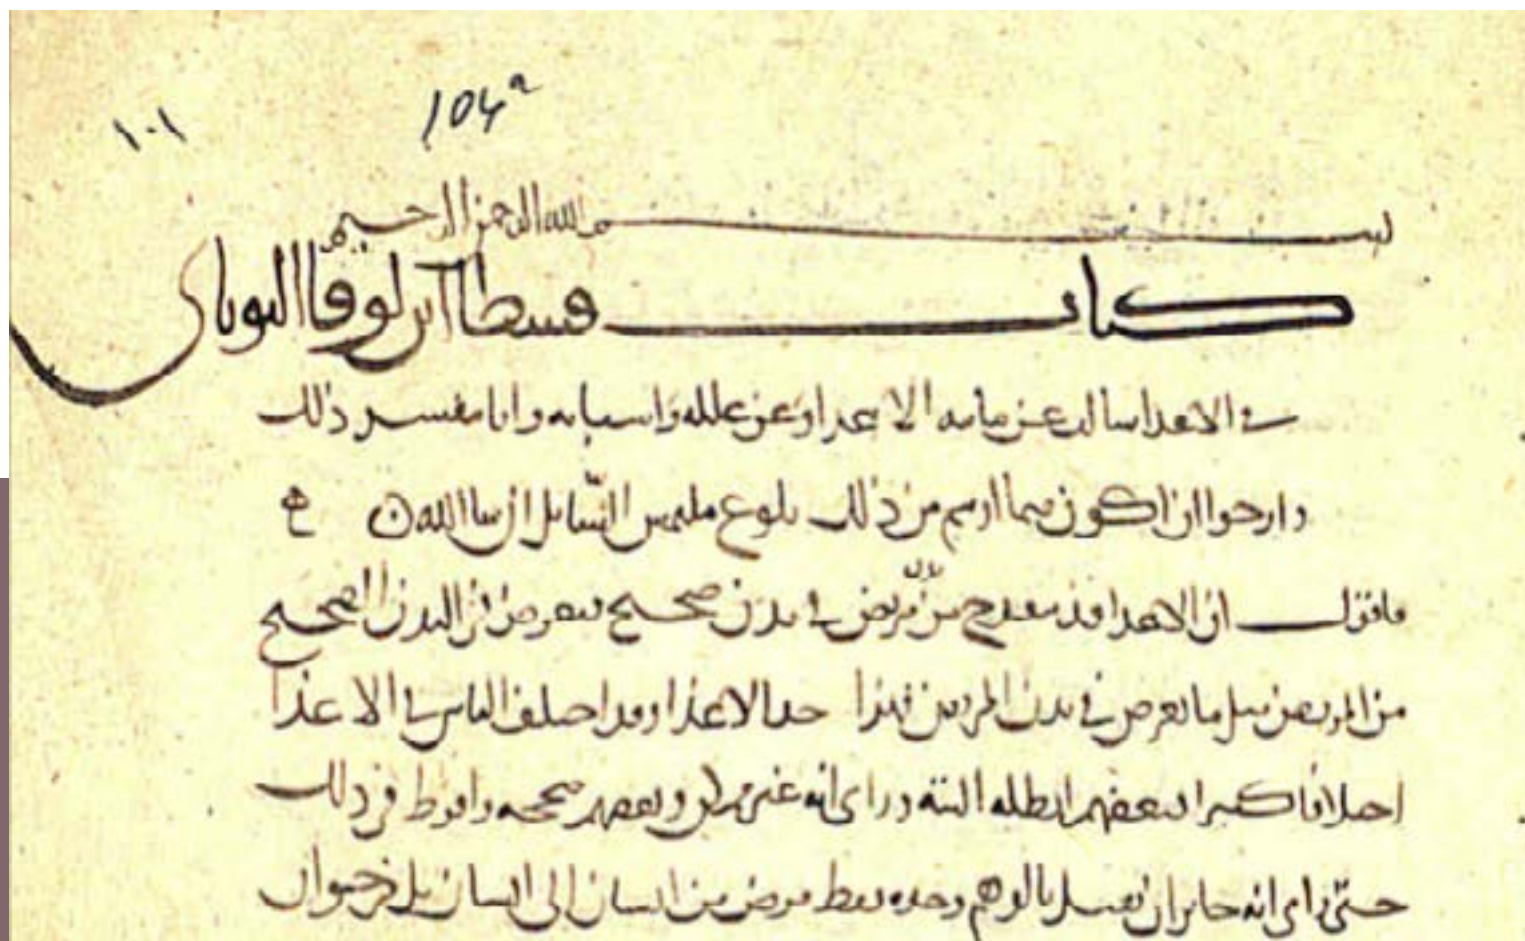 ١٠١ 104ª
بسم الله الرحمن الرحيم
كتاب قسطا ابن لوقا اليوناني
في الاعدا سالت عن مايه الاعدا وعن علله واسبابه وانا مفسر ذلك
وارجوا ان اكون فيما ارسم من ذلك بلوغ ملتمس السّايل ان شا الله
فاقول ان الاعدا قدح من بدن مريض في بدن صحيح فيعرض في البدن الصحيح
من المرض مثل ما يعرض في بدن المريض فهذا حد الاعدا وقد اختلف الناس في الاعدا
اختلافا كثيرا فبعضهم ابطله البتة وراى انه غير ممكن وبعضهم صححه وافرط في ذلك
حتى راى انه جايز ان بالوهم وحده فقط مرض من انسان الى انسان بل في حيوان